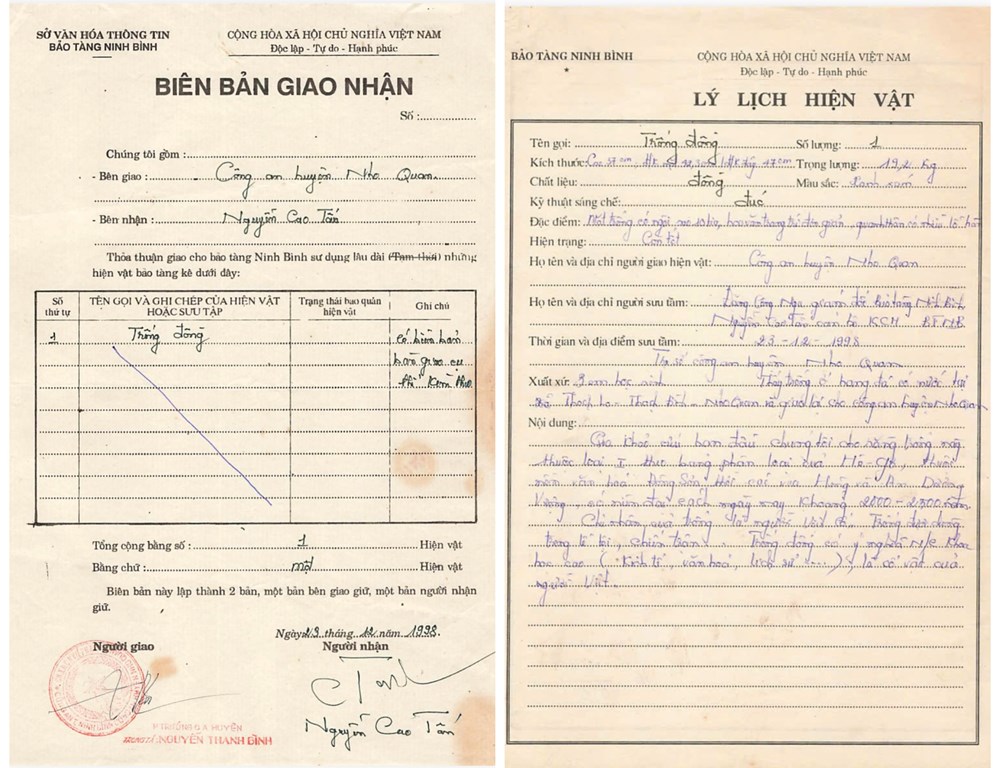 SỞ VĂN HÓA THÔNG TIN
BẢO TÀNG NINH BÌNH
CỘNG HÒA XÃ HỘI CHỦ NGHĨA VIỆT NAM
Độc lập - Tự do - Hạnh phúc
BIÊN BẢN GIAO NHẬN
Số :
Chúng tôi gồm :
- Bên giao : Công an huyện Nho Quan.
- Bên nhận : Nguyễn Cao Tấn
Thỏa thuận giao cho bảo tàng Ninh Bình sử dụng lâu dài (Tạm thời) những
hiện vật bảo tàng kê dưới đây:
Số thứ tự
TÊN GỌI VÀ GHI CHÉP CỦA HIỆN VẬT HOẶC SƯU TẬP
Trạng thái bảo quản hiện vật
Ghi chú
1 Trống đồng có biên bản
bàn giao cụ
thể kèm theo
Tổng cộng bằng số : 1 Hiện vật
Bằng chữ : một Hiện vật
Biên bản này lập thành 2 bản, một bản bên giao giữ, một bản người nhận
giữ.
Ngày 23 tháng 12 năm 1998.
Người giao Người nhận
P TRƯỞNG C.A HUYỆN
TRUNG TÁ: NGUYỄN THANH BÌNH
Nguyễn Cao Tấn
BẢO TÀNG NINH BÌNH
CỘNG HÒA XÃ HỘI CHỦ NGHĨA VIỆT NAM
Độc lập - Tự do - Hạnh phúc
LÝ LỊCH HIỆN VẬT
Tên gọi: Trống đồng Số lượng: 1
Kích thước: Cao 37cm Trọng lượng: 19,2 Kg
Chất liệu: đồng Màu sắc: Xanh xám
Kỹ thuật sáng chế: đúc
Đặc điểm: Mặt trống có ngôi sao 10 cánh, hoa văn trang trí đơn giản, quanh thân có nhiều lỗ
Hiện trạng: Còn tốt
Họ tên và địa chỉ người giao hiện vật: Công an huyện Nho Quan
Họ tên và địa chỉ người sưu tầm: giám đốc Bảo tàng Ninh Bình
Nguyễn Cao Tấn cán bộ BTNB
Thời gian và địa điểm sưu tầm: 23 - 12 - 1998
Trụ sở công an huyện Nho Quan
Xuất xứ: 3 em học sinh Thấy trống ở hang đá có nước tại
xã Thạch Bình - Nho Quan và giao lại cho công an huyện Nho Quan
Nội dung:
Qua khảo cứu ban đầu chúng tôi cho rằng trống này
thuộc loại I, theo bảng phân loại của Hê Gơ, thuộc
nền văn hoá Đông Sơn thời các vua Hùng và An Dương
Vương, có niên đại cách ngày nay khoảng 2000 - 2500 năm.
Chủ nhân của trống là người Việt cổ. Trống được dùng
trong tế lễ, chiến trận. Trống đồng có ý nghĩa N/c Khoa
học cao ( Kinh tế, văn hoá, lịch sử ....), là cổ vật của
người Việt.